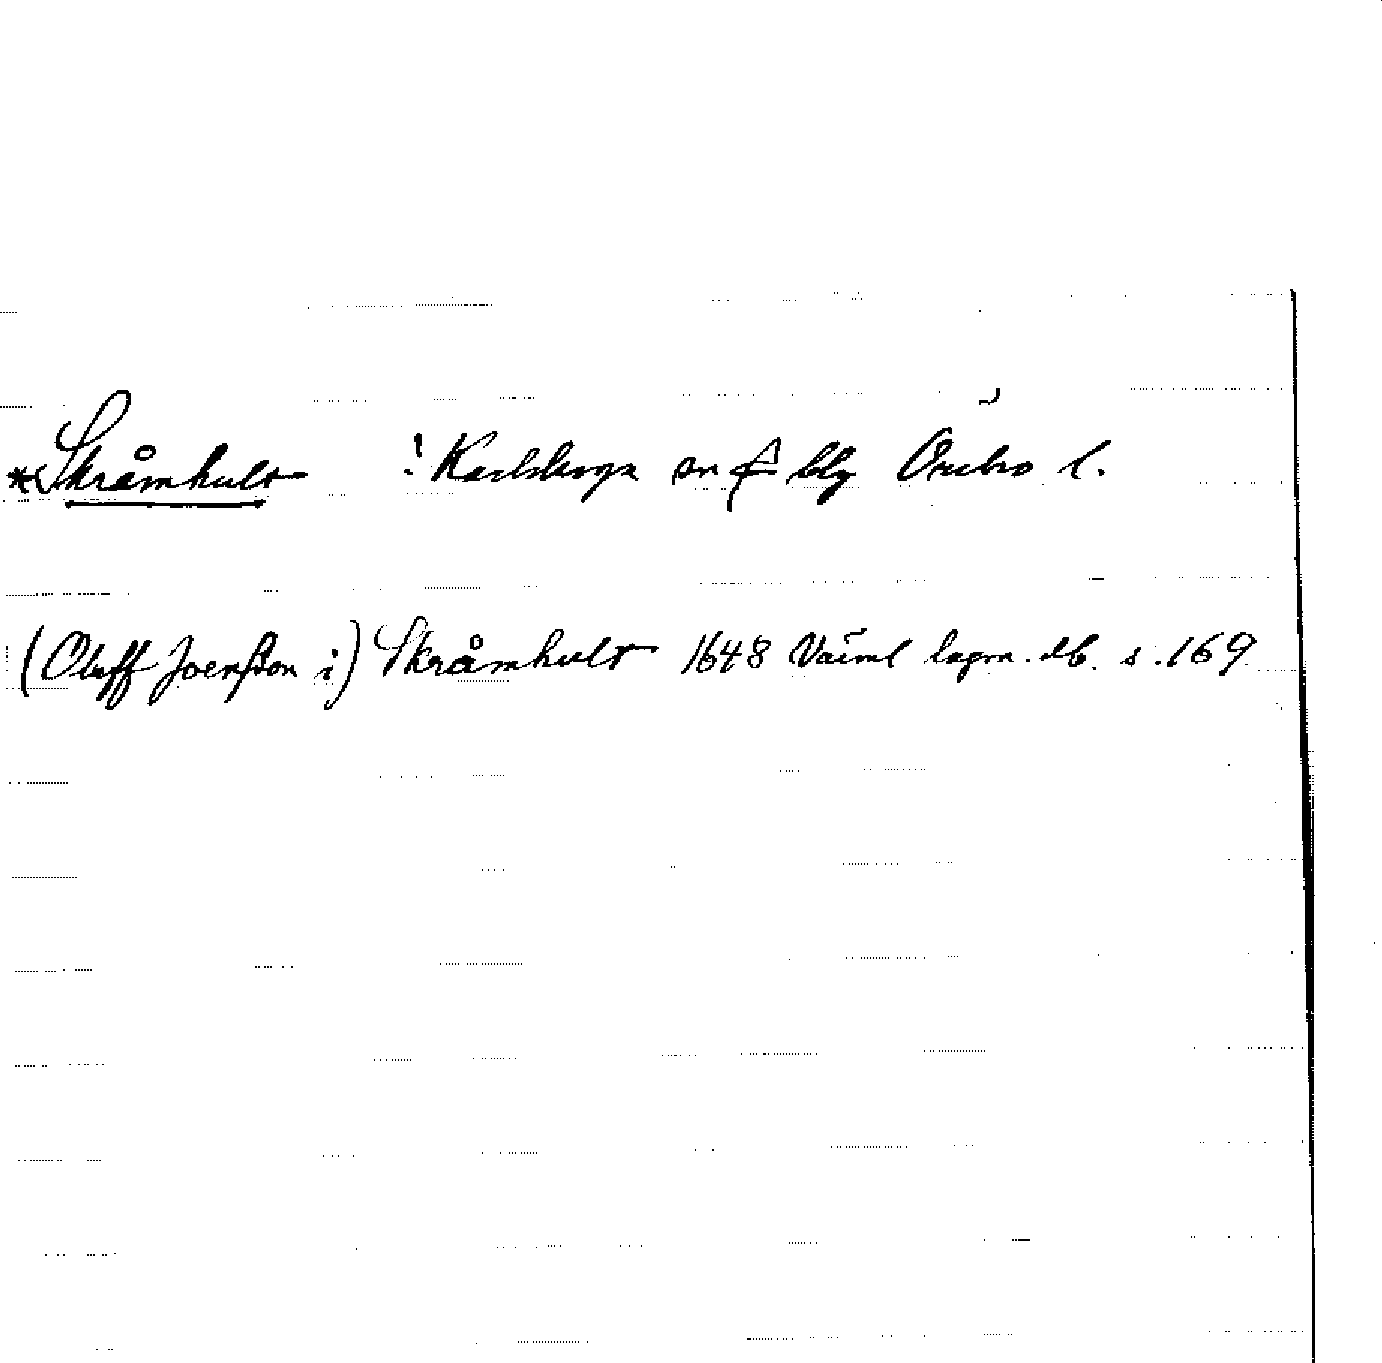 *Skråmhult ! Karlskoga sn o blg Örebro l.
(Oluff Joensson i) Skråmhult 1648 Värml lagm. db. s. 169